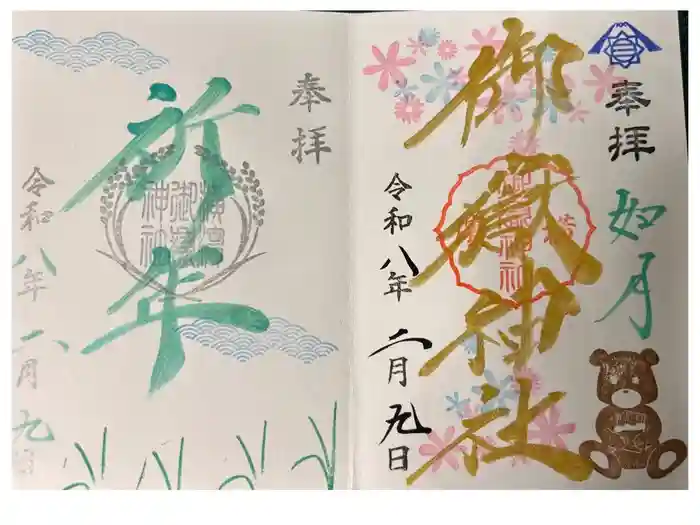 奉拝
如月
御嶽神社
令和八年 二月九日
奉拝
祈年
令和八年 二月九日